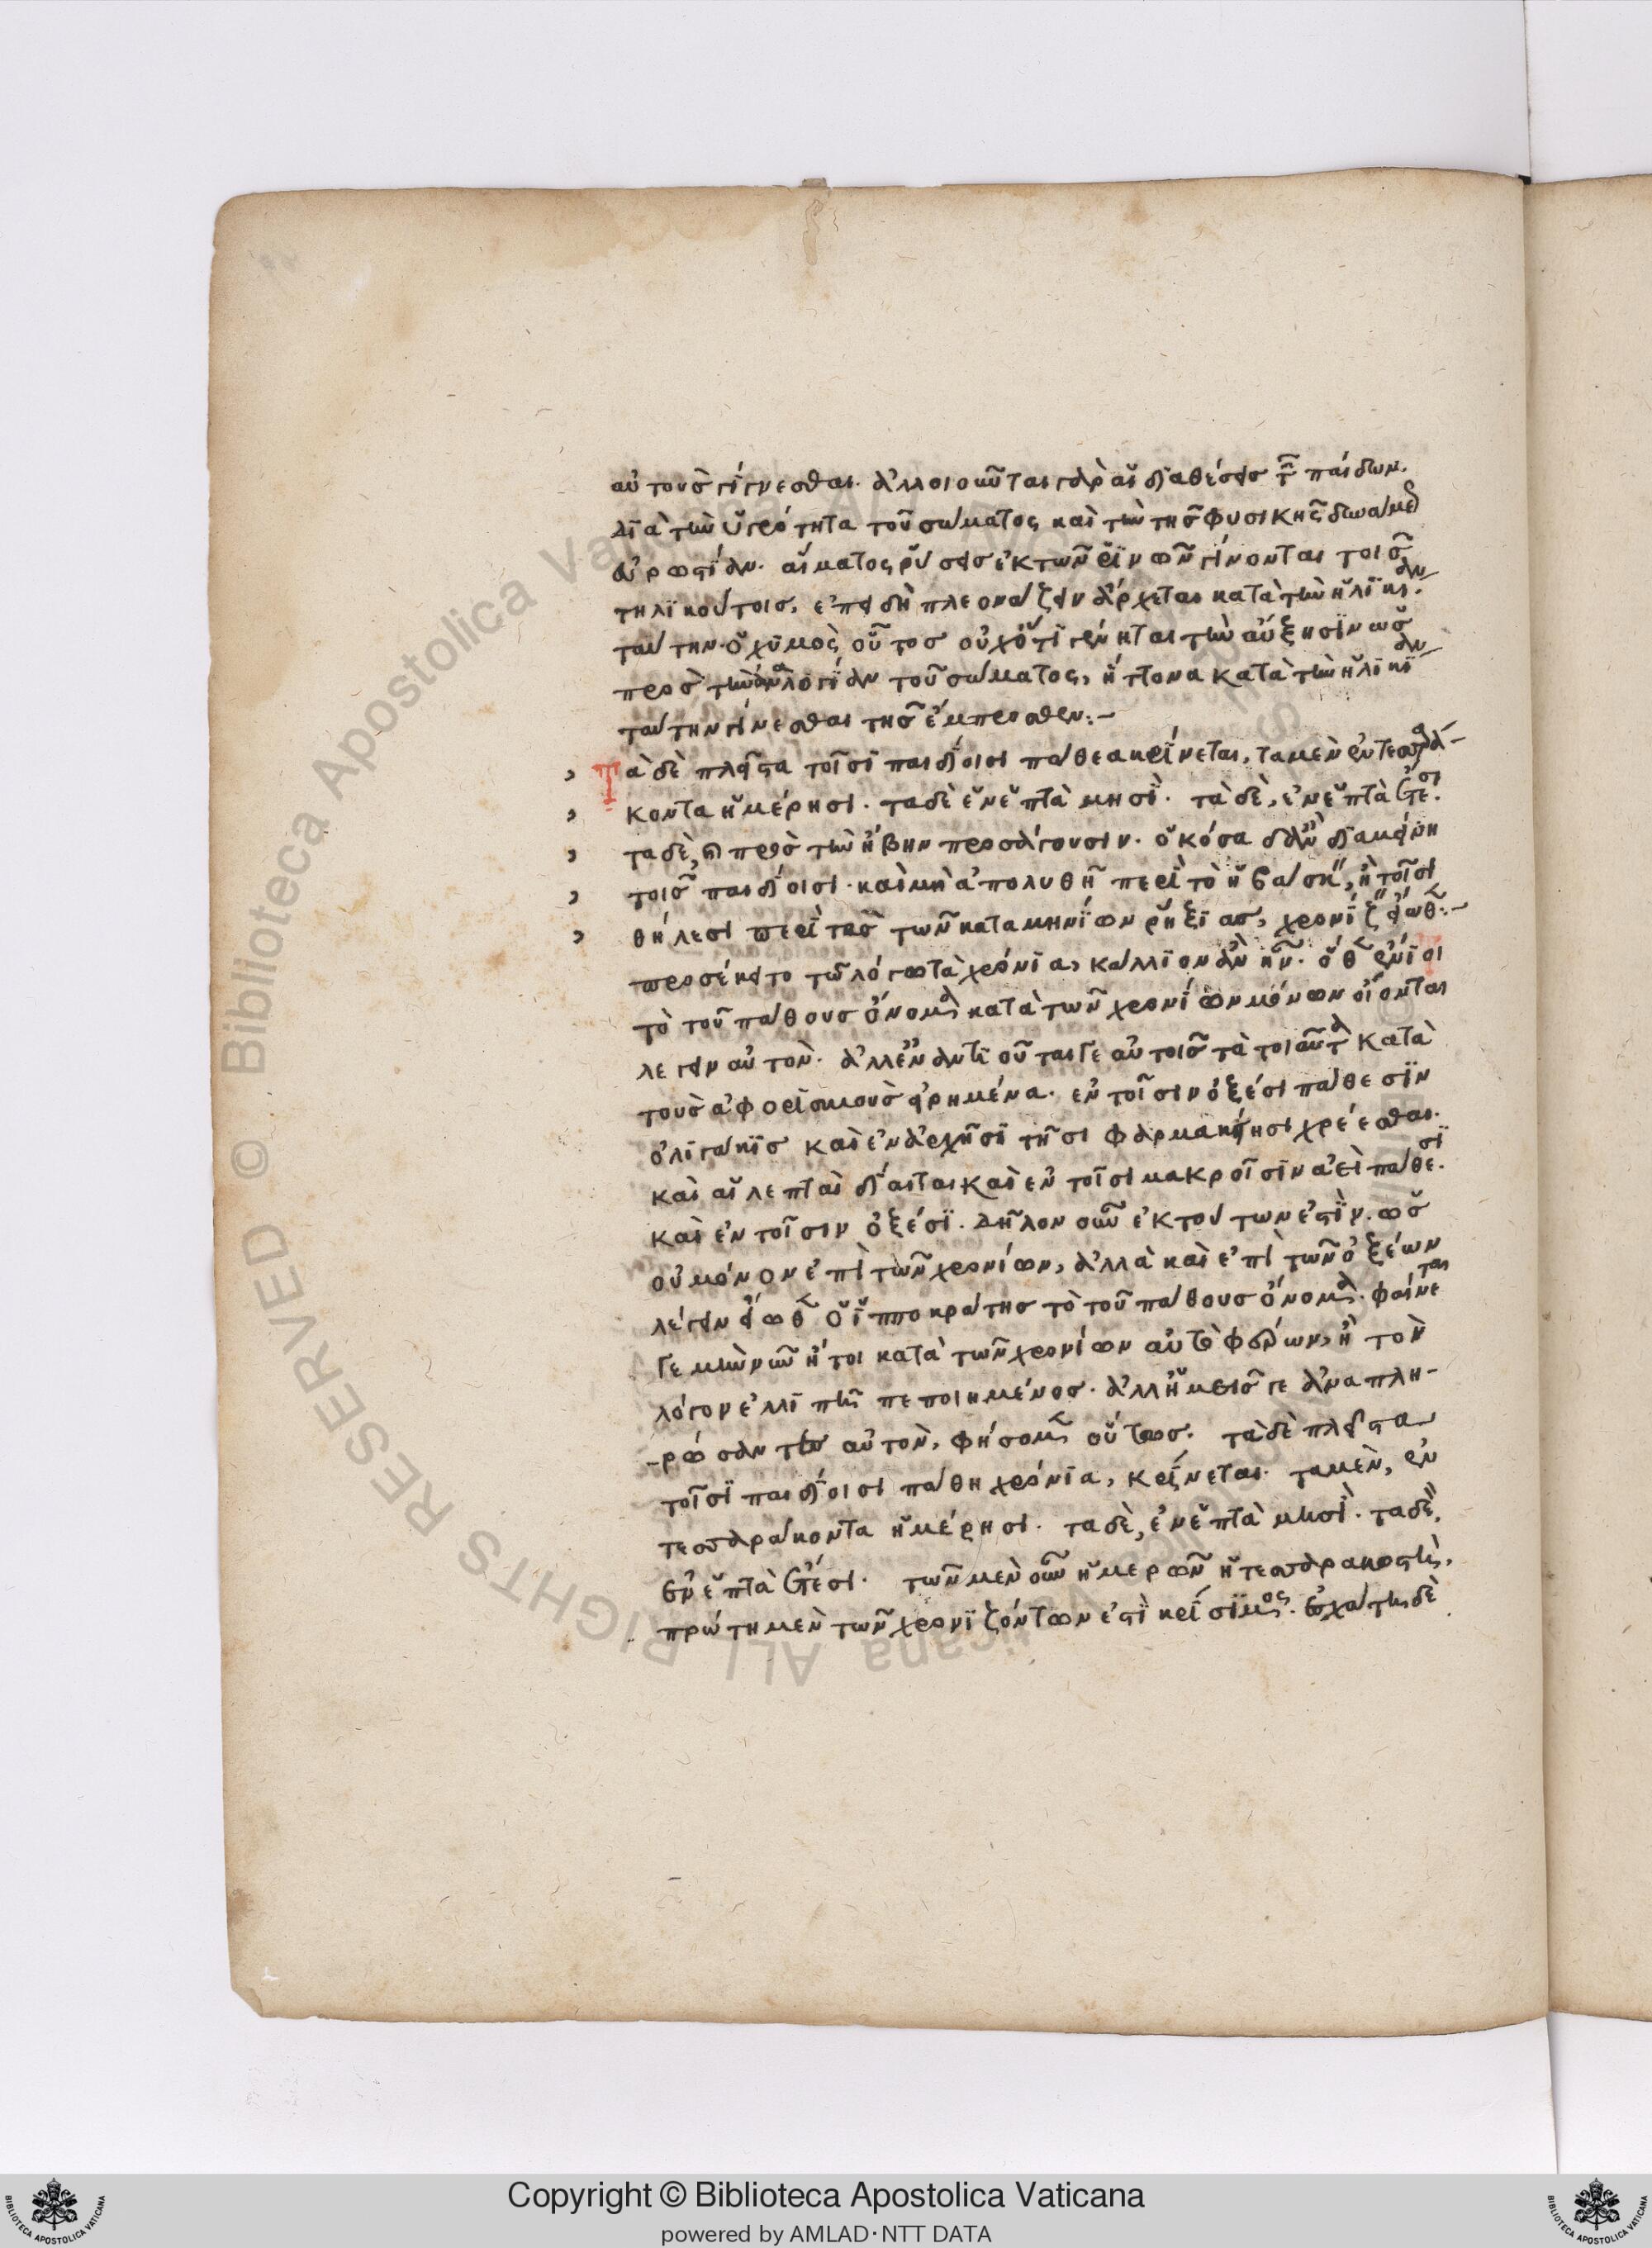 αὐτοὺς γίγνεσθαι. ἀλλοιοῦνται γὰρ αἱ διαθέσεις τῶν παίδων.
διὰ τὴν ὑγρότητα τοῦ σώματος καὶ τὴν τῆς φυσικῆς δυνάμε
εὐρωστίαν. αἵματος ῥύσεις ἐκ τῶν ῥινῶν γίνονται τοῖς
τηλικούτοις, ἐπειδὴ πλεονάζειν ἄρχεται κατὰ τὴν ἡλικίαν
ταύτην ὁ χυμὸς οὗτος οὐχ ὅτι γεννᾶται τὴν αὔξησιν ὡς
πρὸς τὴν ἀναλογίαν τοῦ σώματος, ἥττονα κατὰ τὴν ἡλικίαν
ταύτην γίνεσθαι τῆς ἔμπροσθεν:-
Τὰ δὲ πλεῖστα τοῖσι παιδίοισι πάθεα κρίνεται, τὰ μὲν ἐν τεσσαρά-
κοντα ἡμέρησι. τὰ δὲ ἐν ἑπτὰ μησί. τὰ δὲ, ἐν ἑπτὰ ἔτεσι.
τὰ δὲ, πρὸς τὴν ἥβην προσάγουσιν. ὁκόσα δ' ἂν διαμείνῃ
τοῖς παιδίοισι. καὶ μὴ ἀπολυθῇ περὶ τὸ ἡβάσκειν, ἢ τοῖσι
θήλεσι περὶ τὰς τῶν καταμηνίων ῥήξιας, χρονίζειν εἴωθεν:-
προσέκειτο τῷ λόγῳ τὰ χρόνια, κάλλιον ἂν ἦν. ὅθεν ἔνιοι
τὸ τοῦ πάθους ὄνομα κατὰ τῶν χρονίων μόνων οἴονται
λέγειν αὐτὸν. ἀλλ' ἐναντιοῦταί γε αὐτοῖς τὰ τοιαῦτα κατὰ
τοὺς ἀφορισμοὺς εἰρημένα. ἐν τοῖσιν ὀξέσι πάθεσιν
ὀλιγάκις καὶ ἐν ἀρχῇσι τῇσι φαρμακείησι χρέεσθαι.
καὶ αἱ λεπταὶ δίαιται καὶ ἐν τοῖσι μακροῖσιν ἀεὶ πάθεσι.
καὶ ἐν τοῖσιν ὀξέσι. δῆλον οὖν ἐκ τούτων ἐστὶν. ὡς
οὐ μόνον ἐπὶ τῶν χρονίων, ἀλλὰ καὶ ἐπὶ τῶν ὀξέων
λέγειν εἴωθεν ὁ ἱπποκράτης τὸ τοῦ πάθους ὄνομα. φαίνεται
γε μὴν νῦν ἤτοι κατὰ τῶν χρονίων αὐτὸ φέρων, ἢ τὸν
λόγον ἐλλιπῆ πεποιημένος. ἀλλ' ἡμεῖς γε ἀναπλη-
-ρώσαντες αὐτὸν, φήσομεν οὕτως. τὰ δὲ πλεῖστα
τοῖσι παιδίοισι πάθη χρόνια, κρίνεται. τὰ μὲν, ἐν
τεσσαράκοντα ἡμέρησι. τὰ δὲ, ἐν ἑπτὰ μησὶ. τὰ δὲ,
ἐν ἑπτὰ ἔτεσι. τῶν μὲν οὖν ἡμερῶν ἡ τεσσαρακοστὴ,
πρώτη μὲν τῶν χρονιζόντων ἐστὶ κρίσιμος. ἐσχάτη δὲ
Copyright © Biblioteca Apostolica Vaticana
powered by AMLAD·NTT DATA